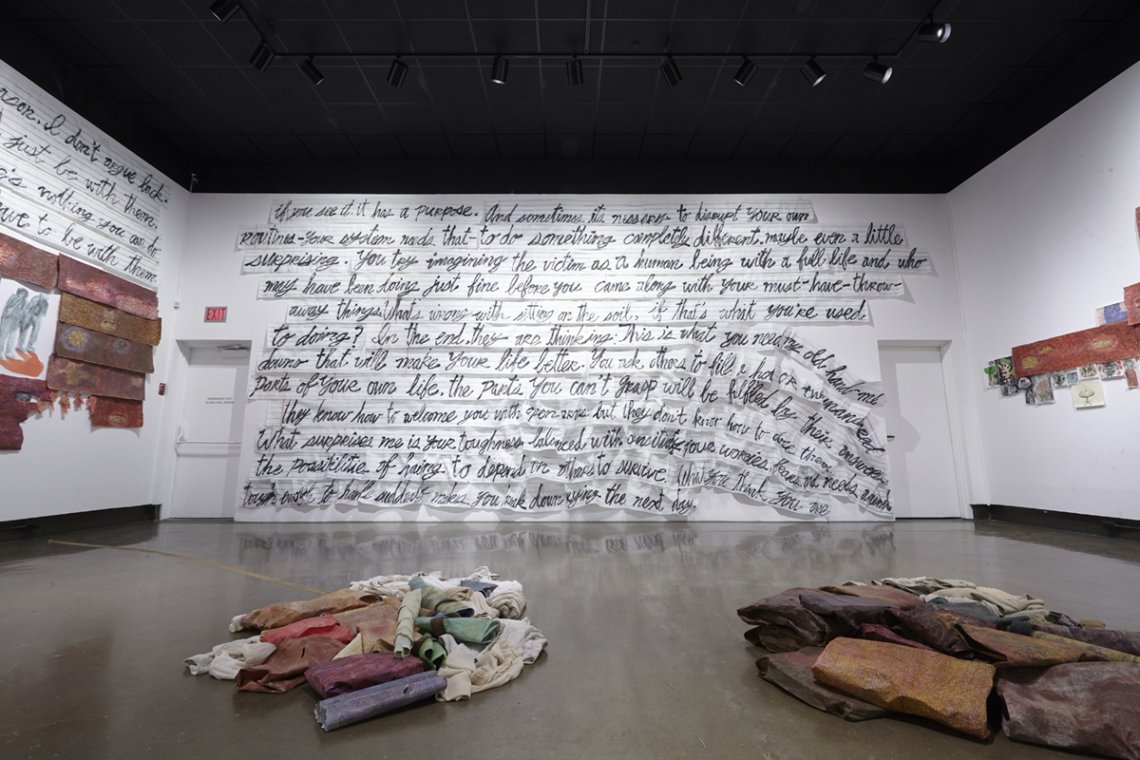 erson. I don't argue back.
just be with them.
e's nothing you can do
have to be with them
if you see it, it has a purpose. And sometimes its mission to disrupt your own
routines-your system needs that-to do something completely different, maybe even a little
surprising. You try imagining the victim as a human being with a full life and who
may have been doing just fine before you came along with your must-have-throw-
away things. What's wrong with sitting on the soil, if that's what you're used
to doing? In the end, they are thinking: This is what you need, the old hand-me
downs that will make your life better. You ask others to fill a hot or
parts of your own life, the parts you can't grasp will be fulfilled by their
they know how to welcome you with open arms but they don't know how to
What surprises me is your toughness balanced with sensitivity your worries, fears and needs
the possibilities of having to depend on others to survive. What you think you are
tough enough to makes you the next day
EXIT